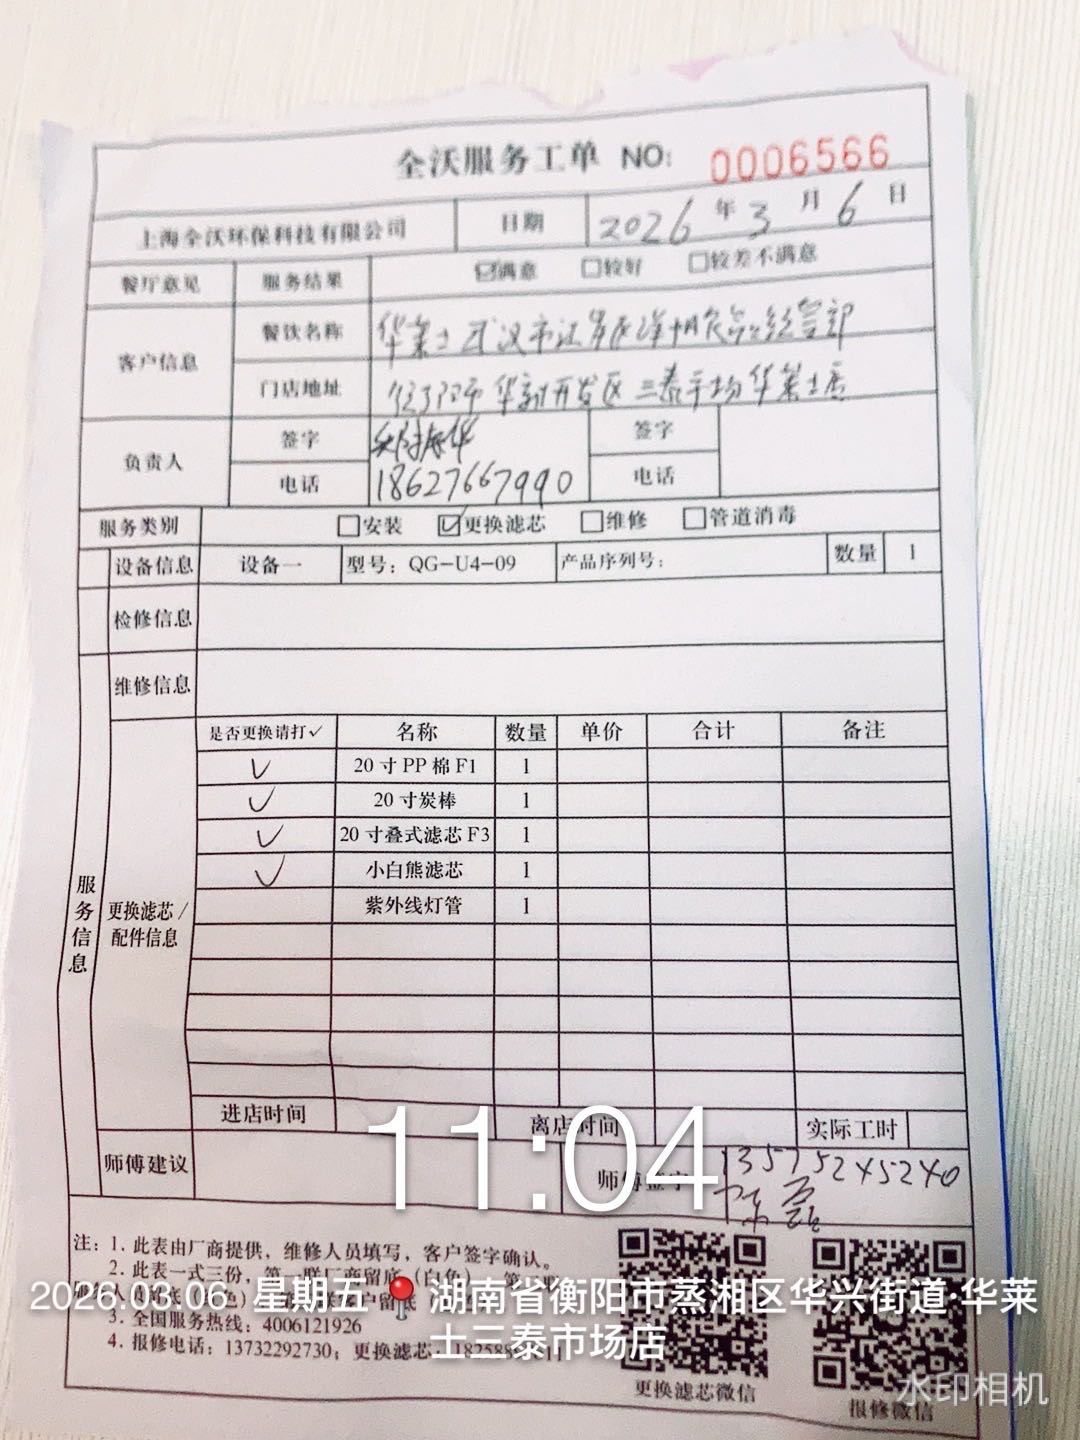 全沃服务工单 NO: 0006566
上海全沃环保科技有限公司 日期 2026年3月6日
餐厅意见 服务结果 ☑满意 □较好 □较差不满意
客户信息 餐饮名称 华莱士 武汉市 食品经营部
门店地址 华新开发区三泰市场华莱士店
负责人 签字 签字
电话 18627667990 电话
服务类别 □安装 ☑更换滤芯 □维修 □管道消毒
设备信息 设备一 型号：QG-U4-09 产品序列号： 数量 1
检修信息
维修信息
服务信息
更换滤芯/配件信息
是否更换请打✓ 名称 数量 单价 合计 备注
✓ 20寸PP棉F1 1
✓ 20寸炭棒 1
✓ 20寸叠式滤芯F3 1
✓ 小白熊滤芯 1
紫外线灯管 1
进店时间 离店时间 实际工时
11:04
师傅建议 师傅签字 13575245240
陈磊
注：1. 此表由厂商提供，维修人员填写，客户签字确认。
2. 此表一式三份，第一联厂商留底（白色）
2026.03.06 星期五 湖南省衡阳市蒸湘区华兴街道·华莱士三泰市场店
3. 全国服务热线：4006121926
4. 报修电话：13732292730；更换滤芯：
更换滤芯微信 报修微信
水印相机